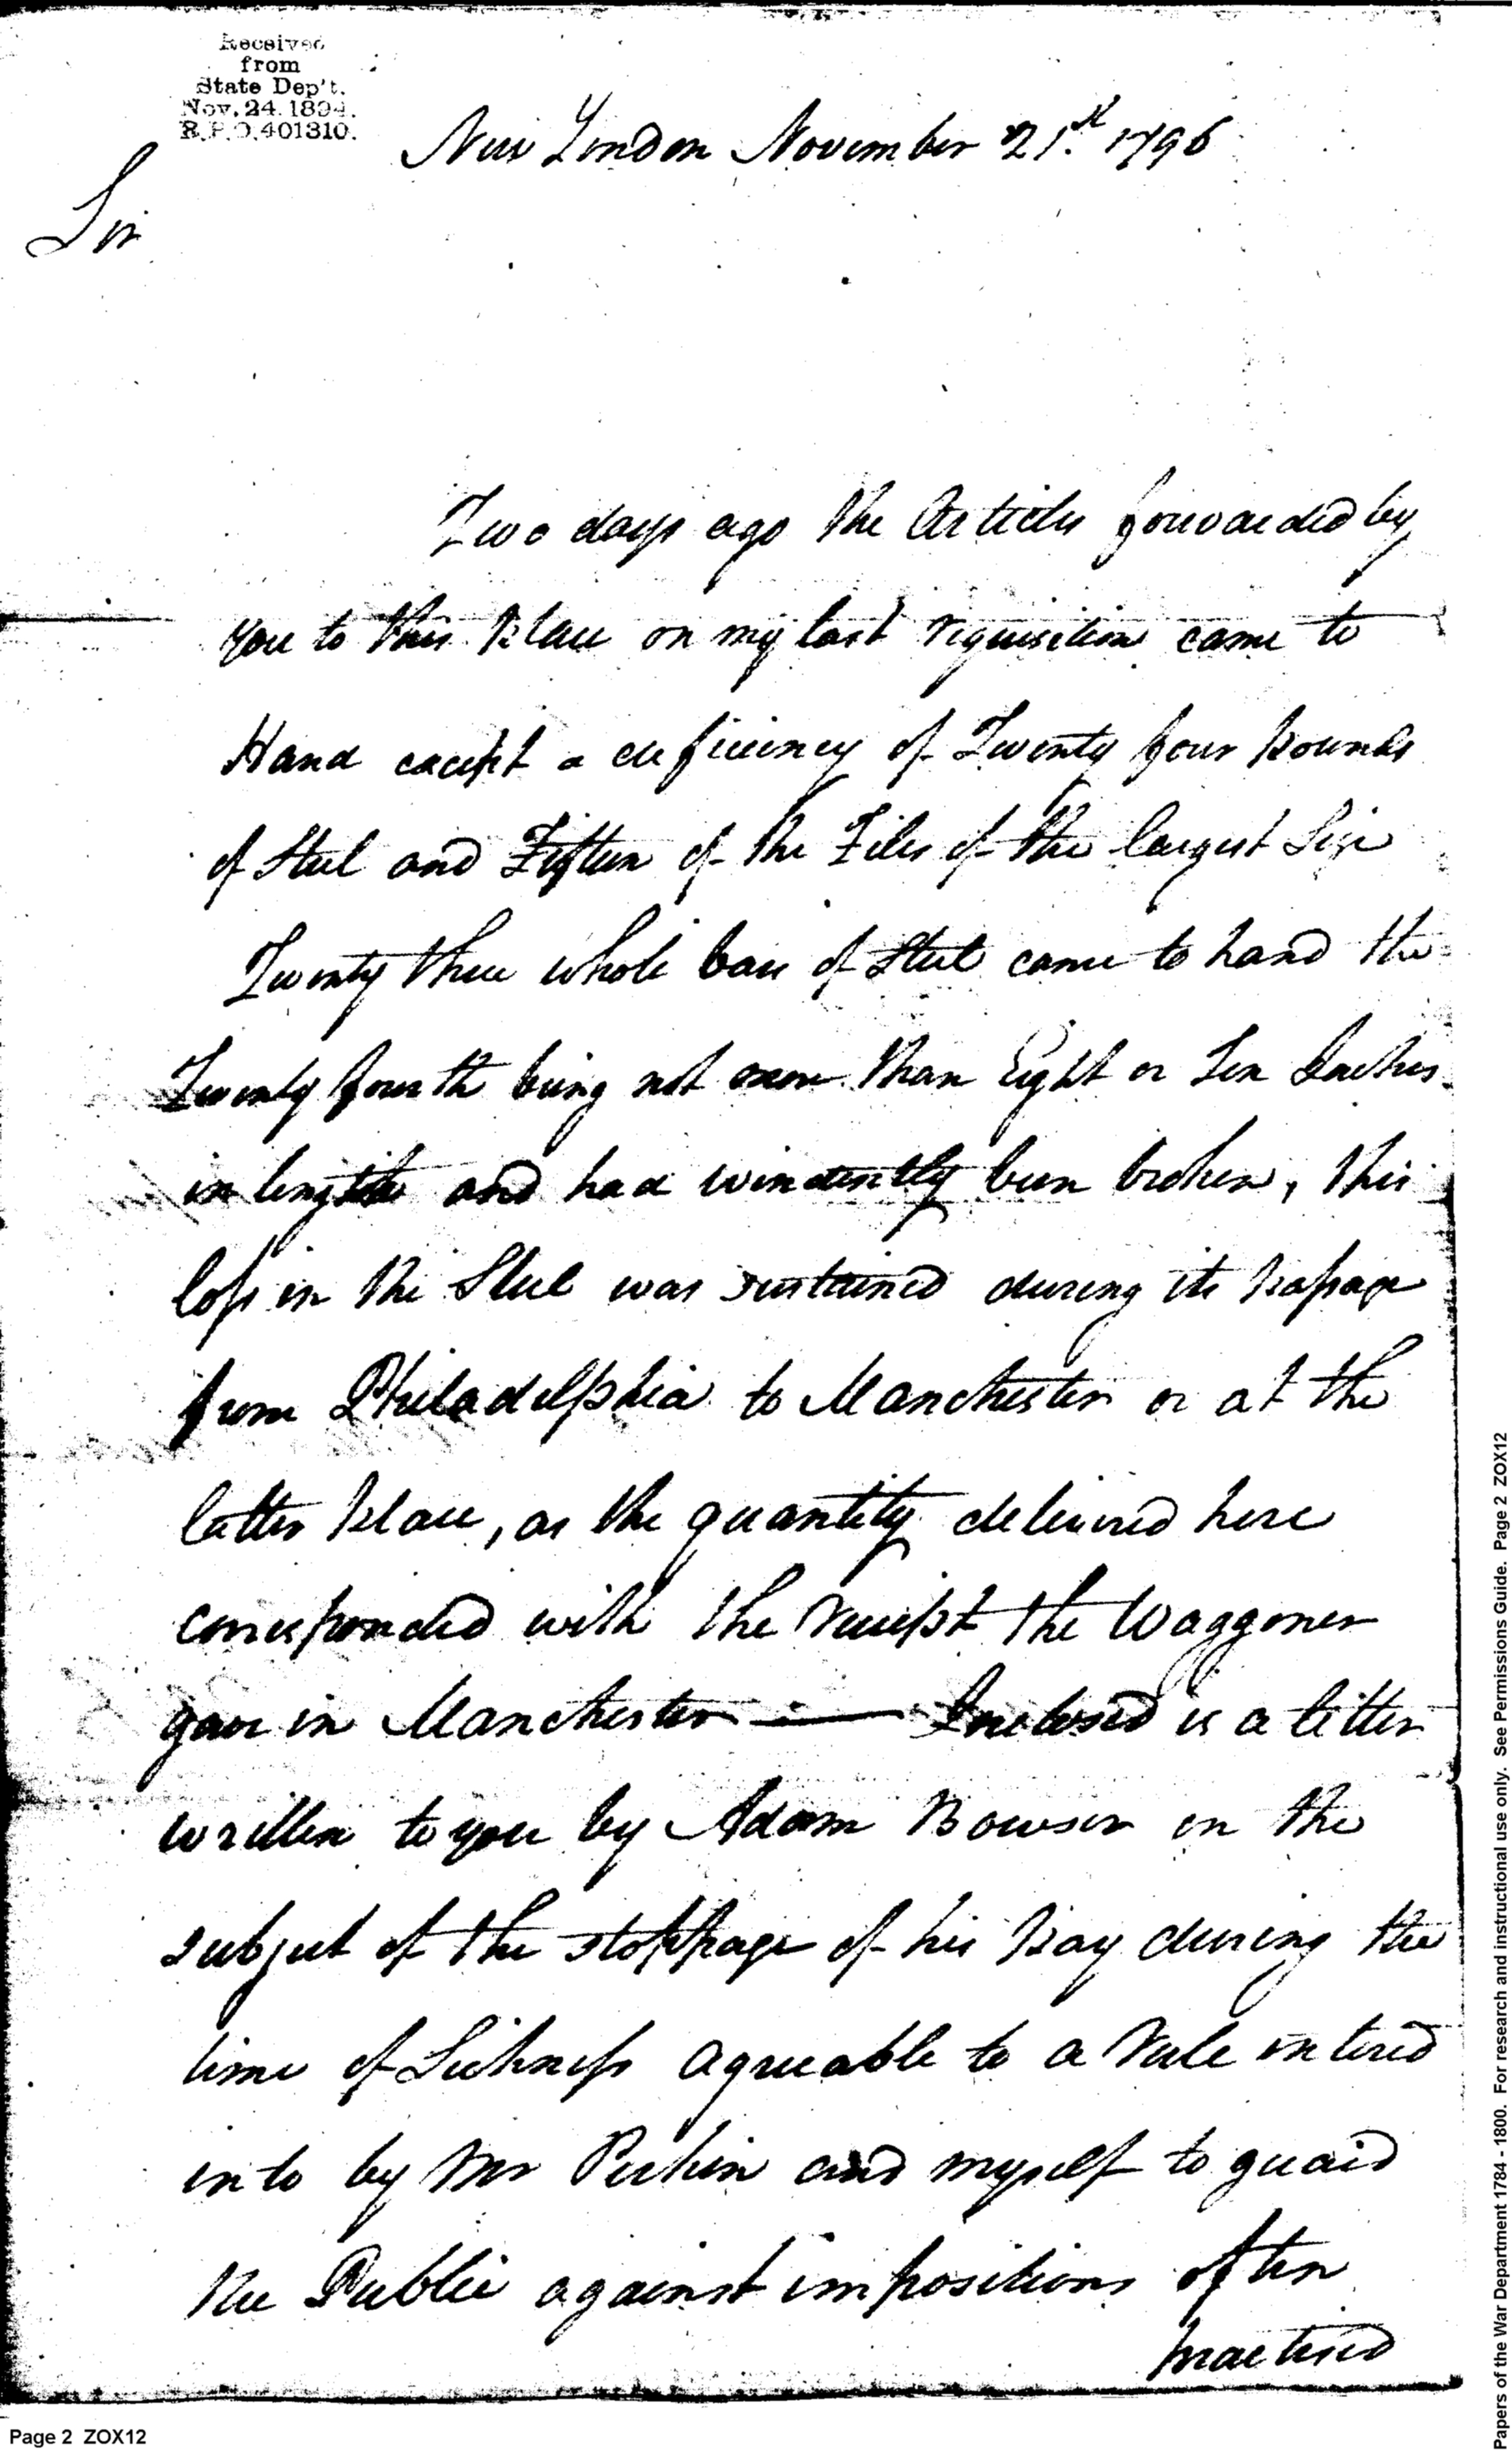 Received
from
State Dep't.
Nov. 24. 1894.
R.P.O. 401310.
New London November 21.st 1796
Sir
Two days ago the Articles forwarded by
you to this Place on my last requisition came to
Hand except a deficiency of Twenty four Pounds
of Steel and Fifteen of the Files of the largest Size
Twenty three whole bars of Steel came to hand the
Twenty fourth being not more than Eight or Ten Inches
in length and had been broken, this
loss in the Steel was sustained during its Passage
from Philadelphia to Manchester or at the
latter Place, as the quantity delivered here
corresponded with the receipt the Waggoner
gave in Manchester — Inclosed is a letter
written to you by Adam Bowser on the
subject of the stoppage of his Pay during the
time of Sickness agreable to a Rule entered
into by Mr Perkin and myself to guard
the Public against impositions often
practised
Page 2 ZOX12
Papers of the War Department 1784 - 1800. For research and instructional use only. See Permissions Guide. Page 2 ZOX12